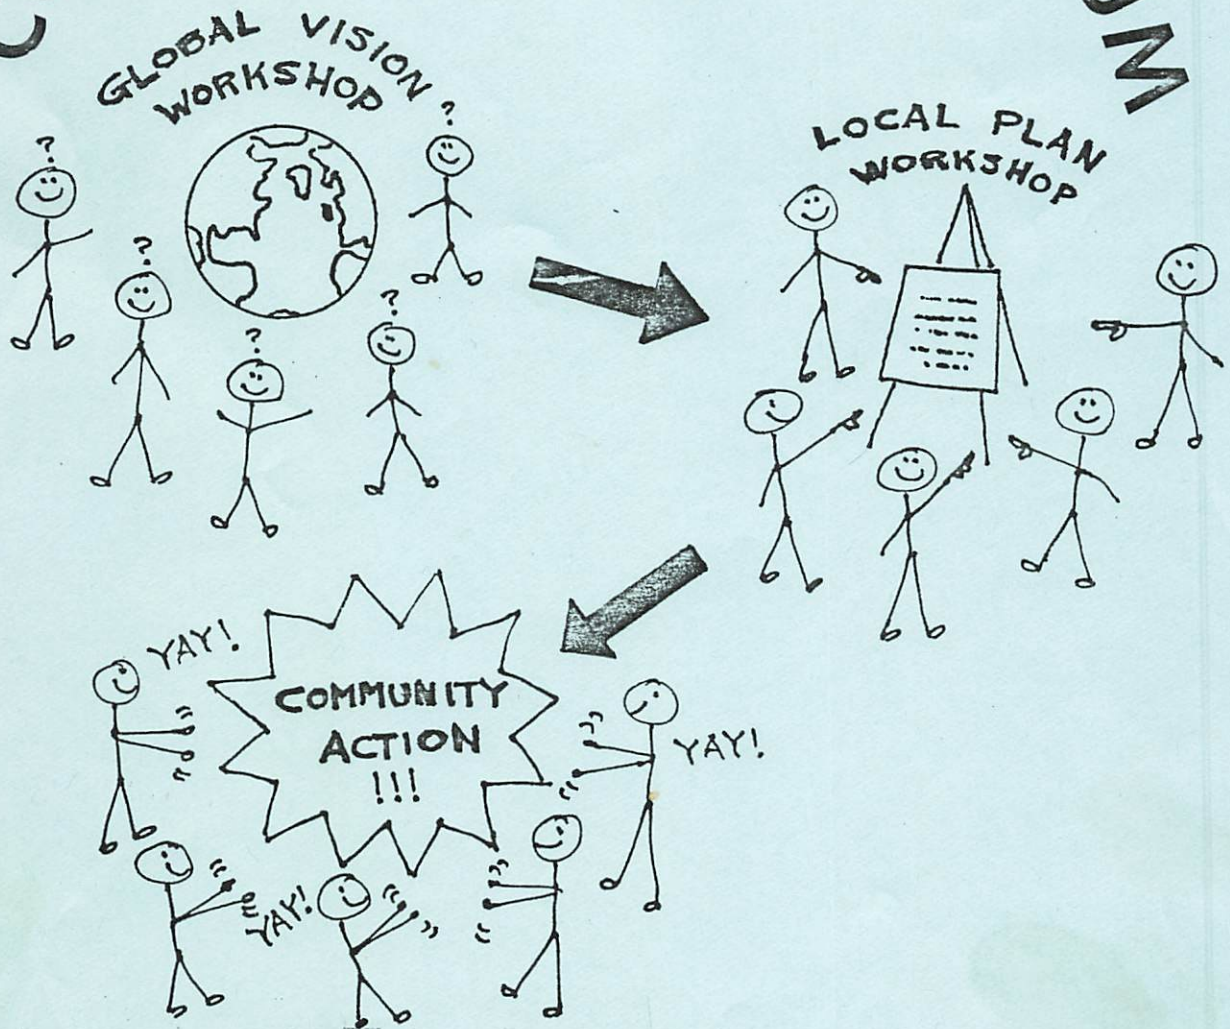 GLOBAL VISION
WORKSHOP
?
?
?
?
?
LOCAL PLAN
WORKSHOP
YAY!
COMMUNITY
ACTION
!!!
YAY!
YAY!